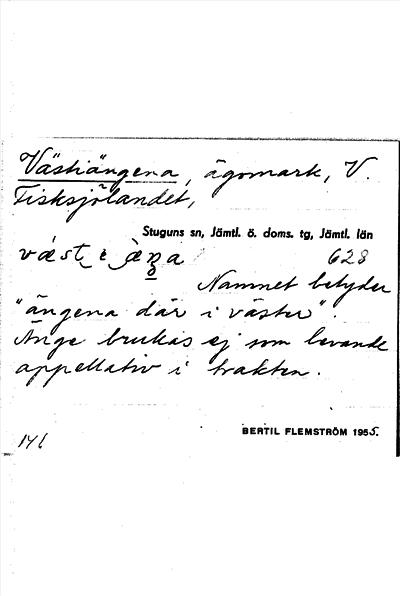 Västiängena, ägomark, V.
Fisksjölandet,
Stuguns sn, Jämtl. ö. doms. tg, Jämtl. län
628
Namnet betyder
"ängena där i väster".
Änge brukas ej som levande
appellativ i trakten.
BERTIL FLEMSTRÖM 1955.